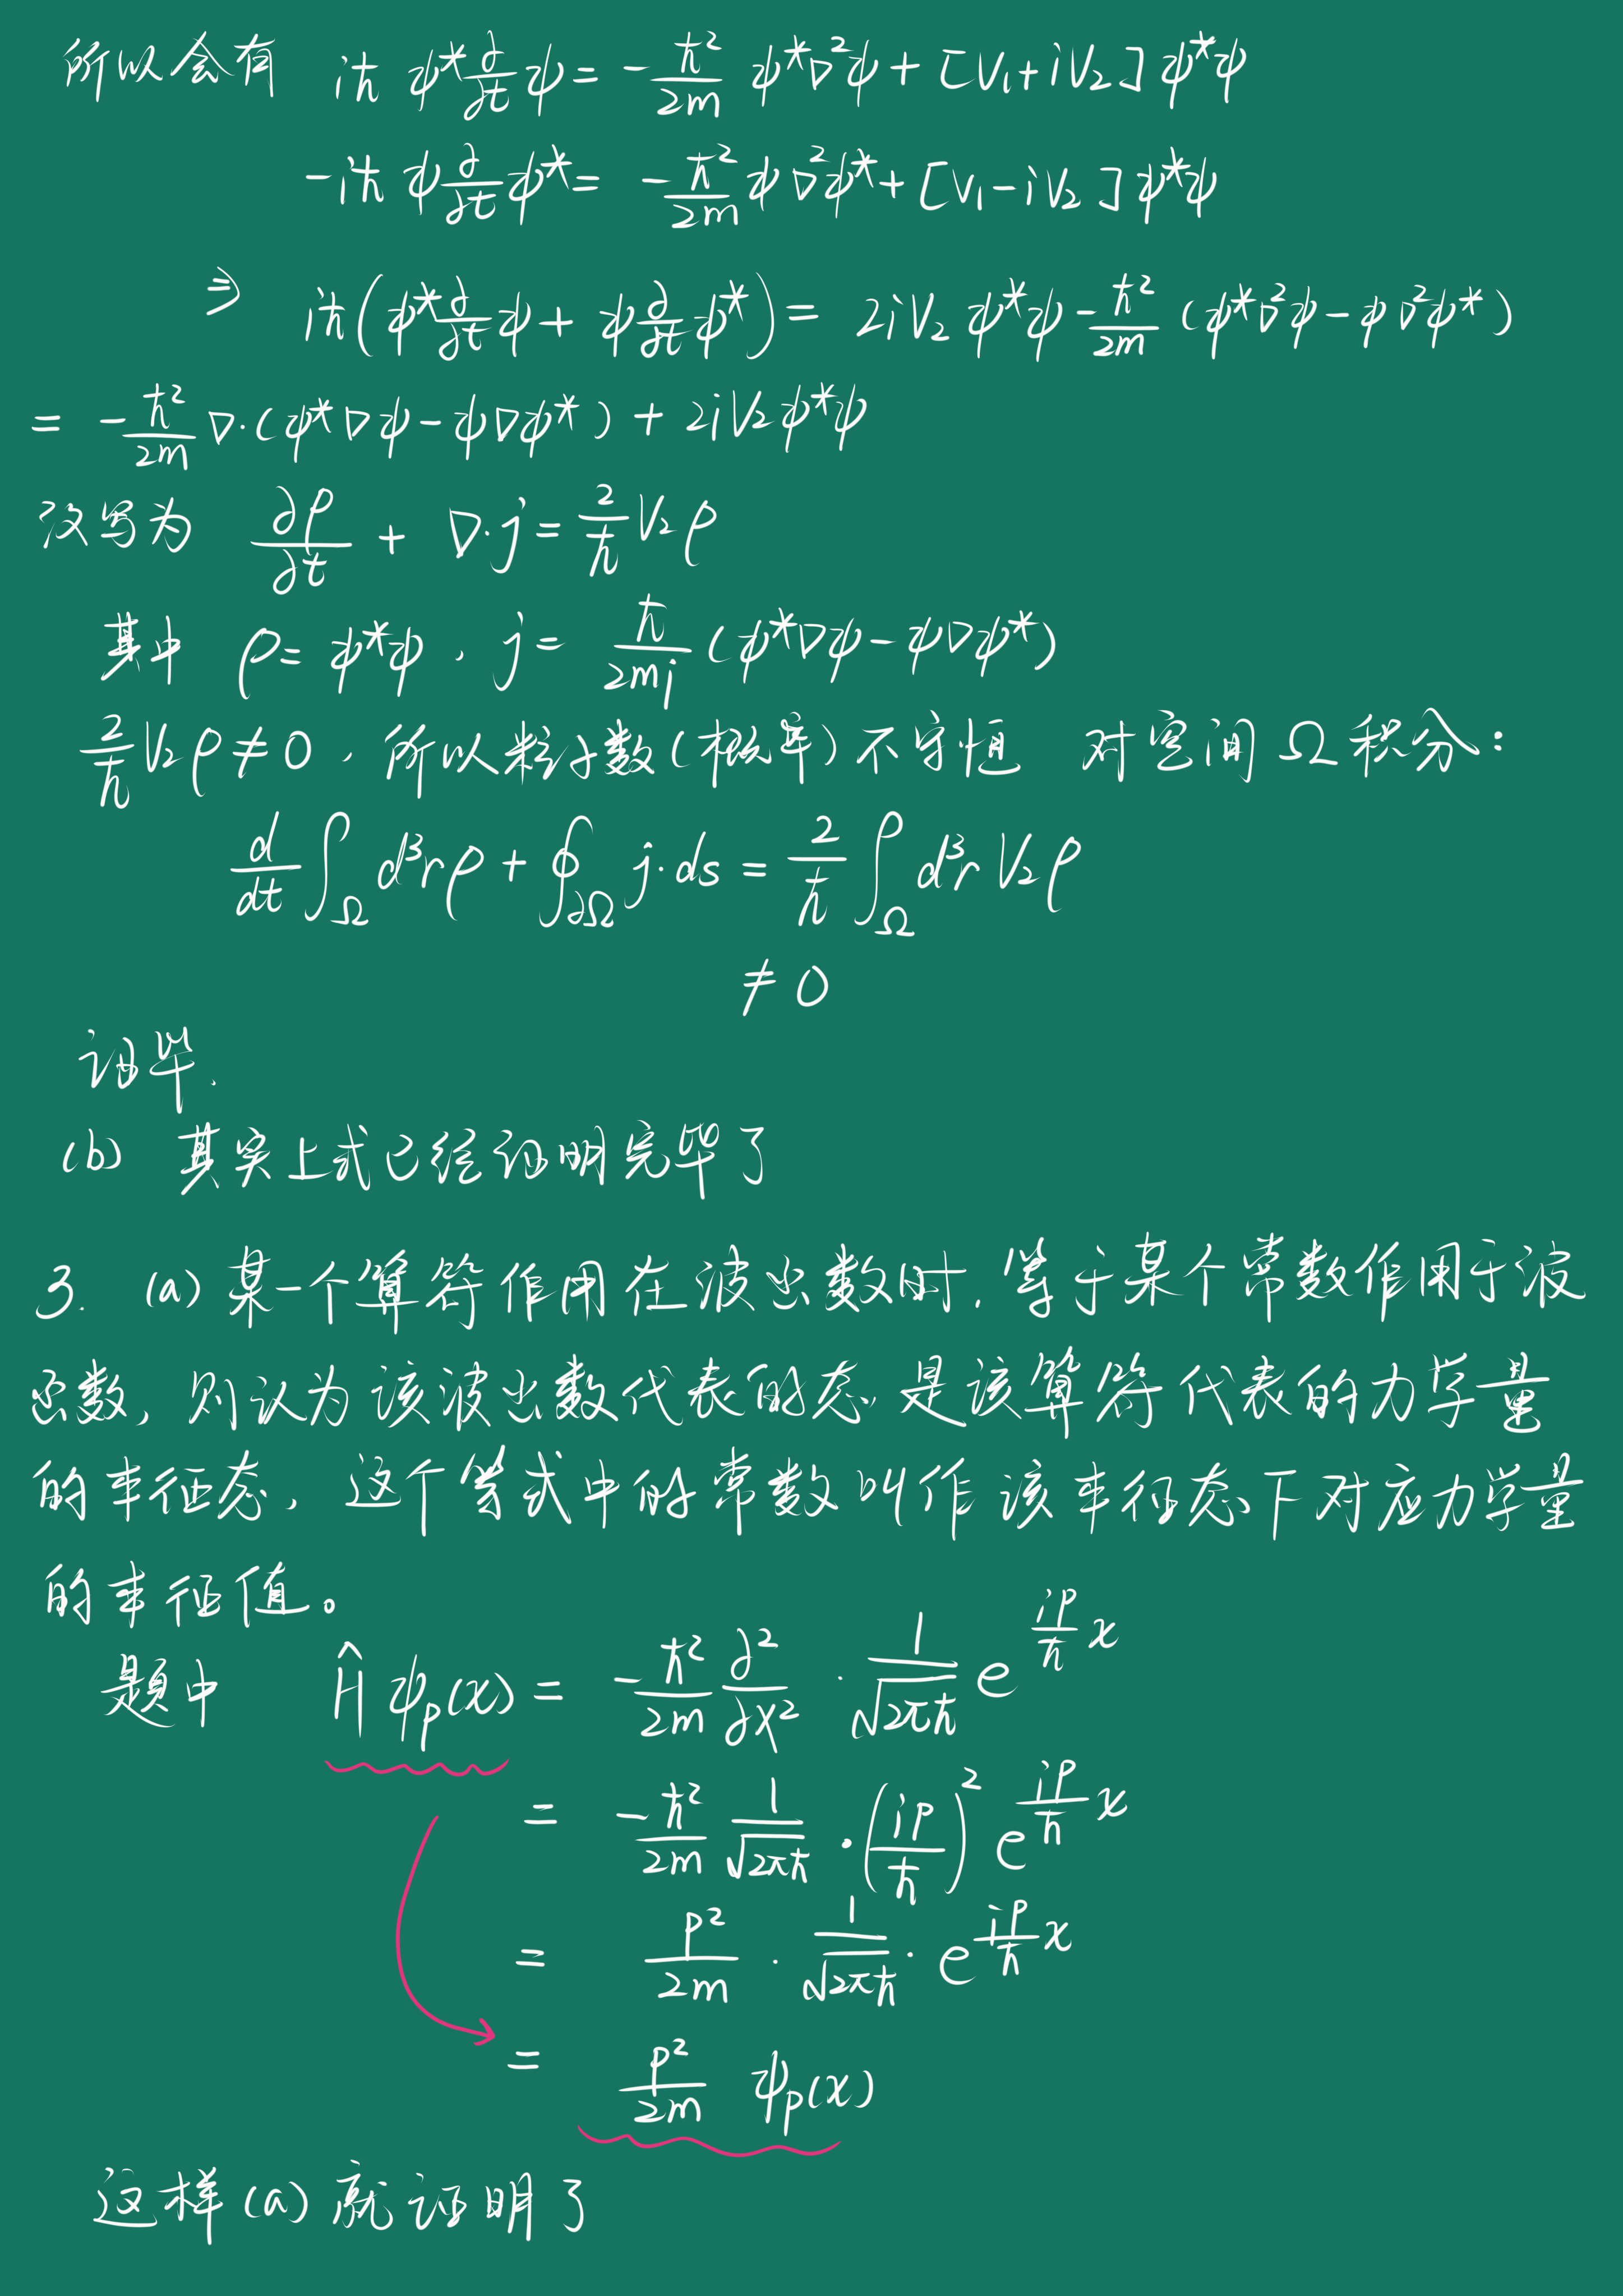 所以会有 iħ ψ* ∂/∂t ψ = -ħ²/2m ψ*∇²ψ + [V₁+iV₂]ψ*ψ
-iħ ψ ∂/∂t ψ* = -ħ²/2m ψ∇²ψ* + [V₁-iV₂]ψ*ψ
⇒ iħ(ψ* ∂/∂t ψ + ψ ∂/∂t ψ*) = 2iV₂ψ*ψ - ħ²/2m (ψ*∇²ψ - ψ∇²ψ*)
= -ħ²/2m ∇·(ψ*∇ψ - ψ∇ψ*) + 2iV₂ψ*ψ
改写为 ∂ρ/∂t + ∇·j = 2/ħ V₂ρ
其中 ρ = ψ*ψ, j = ħ/2mi (ψ*∇ψ - ψ∇ψ*)
2/ħ V₂ρ ≠ 0, 所以粒子数(概率)不守恒 对空间Ω积分:
d/dt ∫_Ω d³rρ + ∮_∂Ω j·ds = 2/ħ ∫_Ω d³r V₂ρ
≠ 0
证毕.
(b) 其实上式已经证明完毕了
3. (a) 某一个算符作用在波函数时, 等于某个常数作用于波
函数, 则认为该波函数代表的态是该算符代表的力学量
的本征态, 这个等式中的常数叫作该本征态下对应力学量
的本征值。
题中 Ĥψₚ(x) = -ħ²/2m ∂²/∂x² · 1/√2πħ e^(ip/ħ x)
= -ħ²/2m 1/√2πħ · (ip/ħ)² e^(ip/ħ x)
= p²/2m · 1/√2πħ · e^(ip/ħ x)
= p²/2m ψₚ(x)
这样(a)就证明了